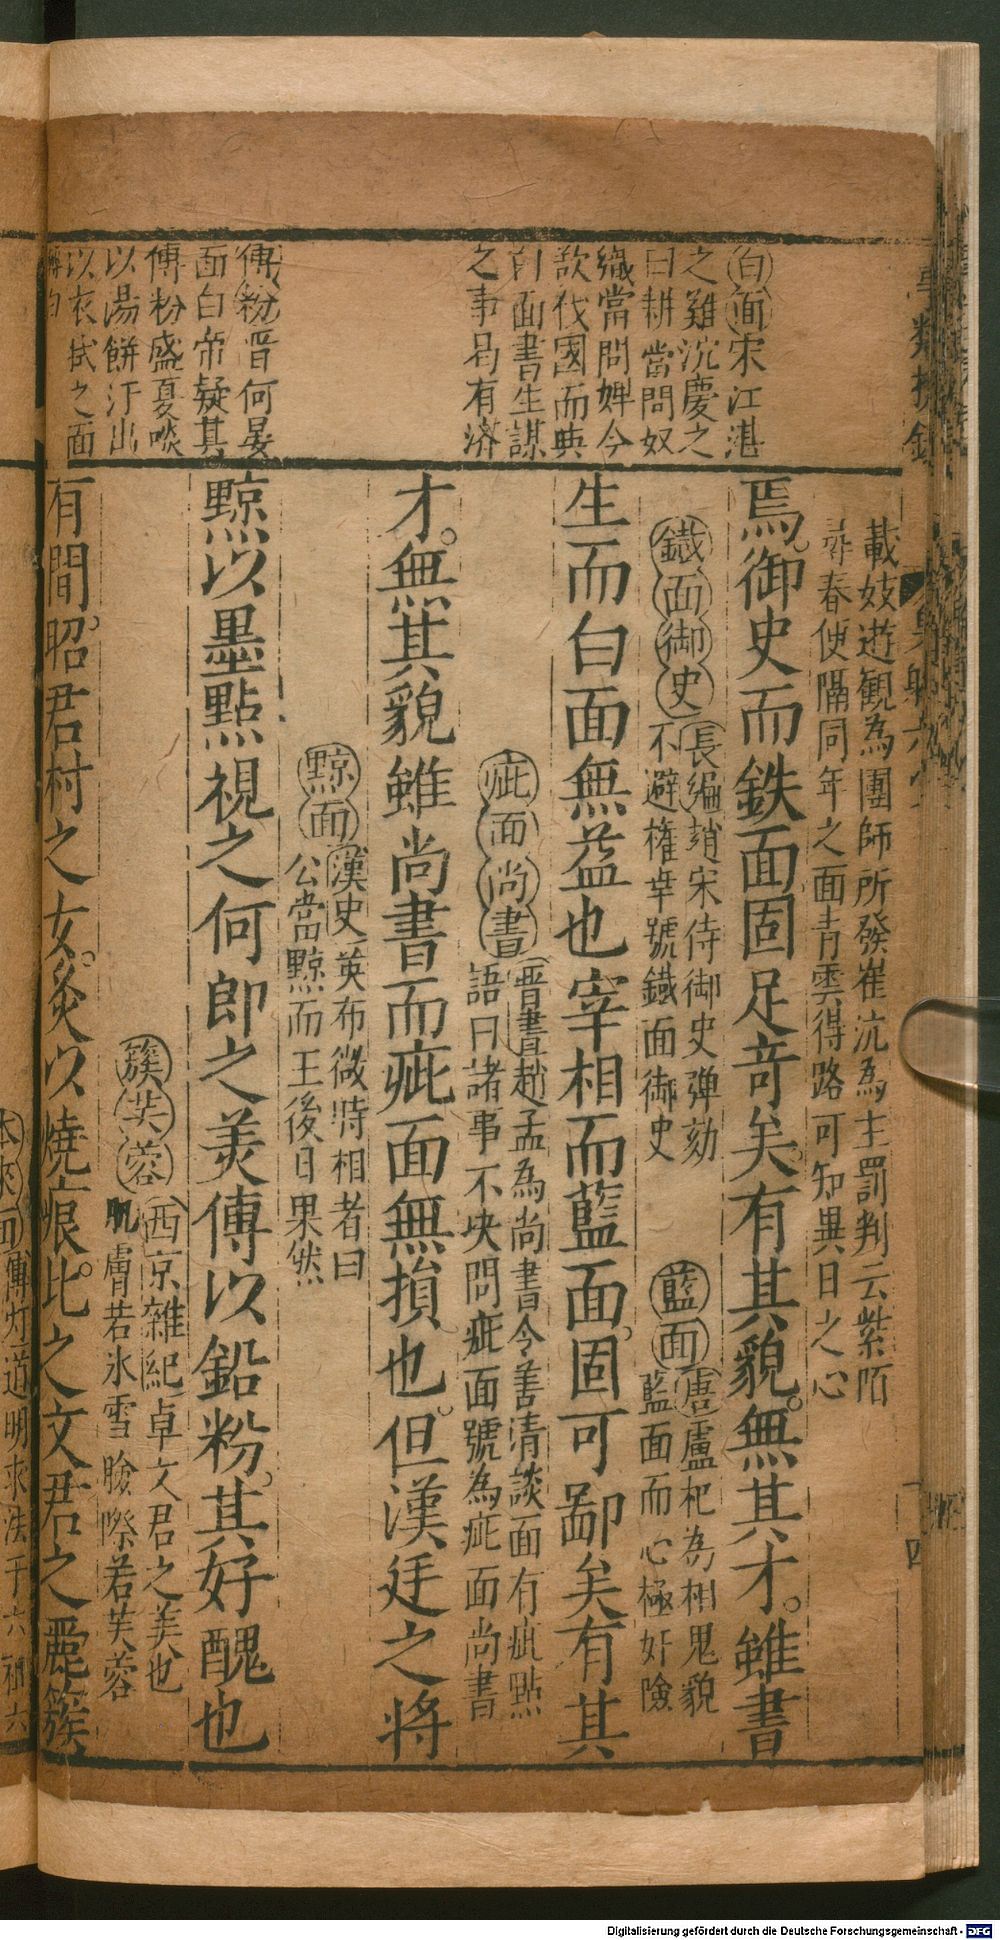 白面宋江湛
之難沉慶之
曰耕當問奴
織當問婢今
欲伐國而與
白面書生謀
之事曷有濟
傅粉晋何晏
面白帝疑其
傅粉盛夏啖
以湯餅汗出
以衣拭之面
載妓遊観為團師所發崔沆為主罰判云紫陌
尋春便隔同年之面青雲得路可知異日之心
焉御史而鉄面固足竒矣有其貌無其才雖書
鐡面御史
長編趙宋侍御史弾劾
不避權幸號鐡面御史
藍面
唐盧杞為相鬼貌
藍面而心極奸險
生而白面無益也宰相而藍面固可鄙矣有其
疵面尚書
晋書趙孟為尚書令善清談面有疵點
語曰諸事不决問疵面號為疵面尚書
才無其貌雖尚書而疵面無損也但漢廷之将
黥面
漢史英布微時相者曰
公當黥而王後日果然
黥以墨點視之何郎之美傅以鉛粉其好醜也
簇芙蓉
西京雜紀卓文君之美也
肌膚若氷雪臉際若芙蓉
有間昭君村之女炙以燒痕比之文君之麗簇
本來面傳灯道明求法于六祖六
四
Digitalisierung gefördert durch die Deutsche Forschungsgemeinschaft - DFG